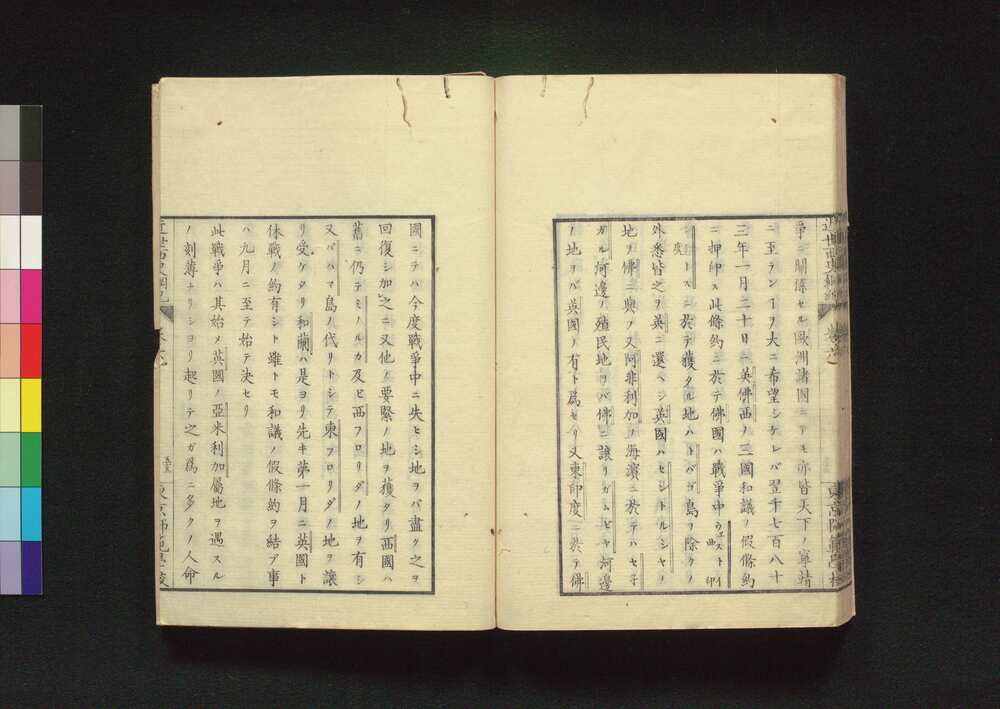 爭ニ關渉セル歐洲諸國ニテモ亦皆天下ノ寧靖
ニ至テンヿヲ大ニ希望シケレバ翌千七百八十
三年一月二十日ニ英佛西ノ三國和議ノ假條約
ニ押印ス此條約ニ於テ佛國ハ戰爭中ウエスト印
度ニ於テ獲タル地ハトバゴ島ヲ除クノ
外悉皆之ヲ英ニ還ヘシ英國ハセシトルシヤノ
地ヲ佛ニ與ヲ又阿非利加ノ海濱ニ於テハセ子
ガル河邊ノ殖民地ヲバ佛ニ讓リガムビヤ河邊
ノ地ヲバ英國ノ有ト爲セリ又東印度ニ於テ佛
國ニテハ今度戰爭中ニ失ヒシ地ヲバ盡ク之ヲ
回復シ加之ニ又他ノ要緊ノ地ヲ獲タリ西國ハ
舊ニ仍テミノルカ及ヒ西フロリダノ地ヲ有シ
又バハマ島ノ代リトシテ東フロリダノ地ヲ讓
リ受ケタリ和蘭ハ是ヨリ先キ第一月ニ英國ト
休戰ノ約有シト雖トモ和議ノ假條約ヲ結ブ事
ハ九月ニ至テ始テ決セリ
此戰爭ハ其始メ英國ノ亞米利加屬地ヲ遇スル
ノ刻薄ナリシヨリ起リテ之ガ爲ニ多クノ人命